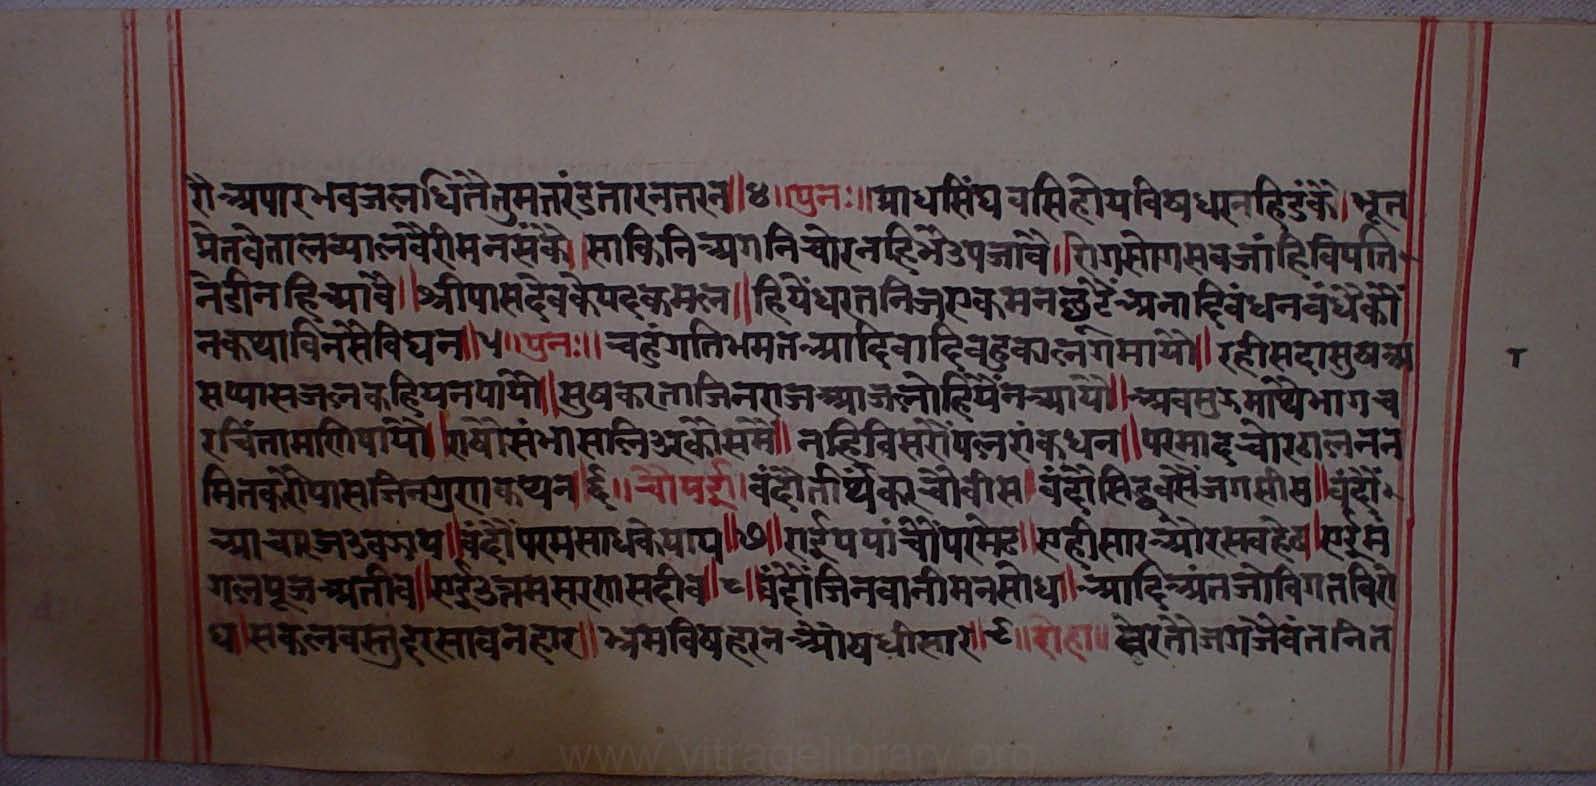 रौ अपारभवजलधितैतुमतरंडतारनतरन॥४॥पुनः॥बाधसिंघवसिहोयविषधरनहिडंकै।भूत
प्रेतवेतालव्यालवैरीमनसंकै।साकिनिअगनिचोरनहिभैउपजावै॥रोगसोगसबजांहिविपति
नेडीनहिआवै॥श्रीपासदेवकेपदकमल॥हियैंधरतनिजएकमनछुटैंअनादिबंधनबंधैकौं
नकथाविनसैविघन॥५॥पुनः॥चहुंगतिभमतआदिवादिबहुकालगमायौ॥रहीसदासुषअ
सप्यासजलकहियनपायौ॥सुषकरताजिनराजआजलोहियैनआयौ॥अबमुझमाथैभागच
रचिंतामणिपायौ॥राषौसंभासलिअरकौसमै॥नहिविसरौंपलरंकधन॥परमादचोरटालनन
मितकरौंपासजिनगुणकथन॥६॥चौपई॥बंदौतीर्थंकरचौवीस॥बंदौंसिद्धवसैंजगसीस॥बंदौं
आचारजउवझाय॥बंदौंपरमसाधकेपाय॥७॥एईपयांचौंपरमेष्ट॥एहीसारऔरसबहेठ॥एईमं
गलपूजअतीव॥एईउत्तमसरणसदीव॥८॥बंदौंजिनवानीमनसोध॥आदिअंतजोविगतविरो
ध॥सकलवस्तुदरसावनहार॥भ्रमविषहरनऔषधीसार॥९॥दोहा॥ जगजैवंतनित
www.vitragelibrary.org